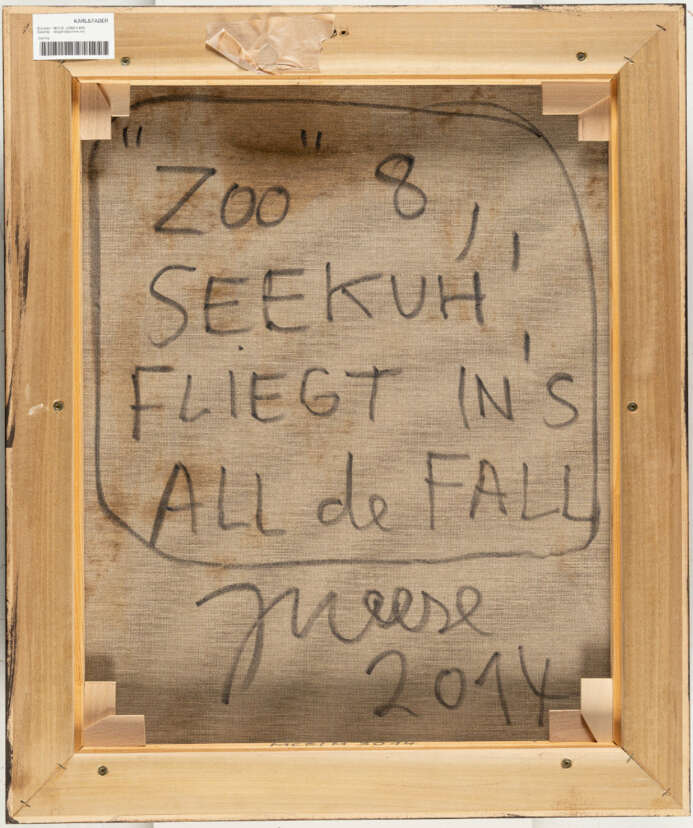 KARL&FABER
"Zoo" 8,,
SEEKUH,
FLIEGT IN'S
ALL de FALL
JMeese
2014